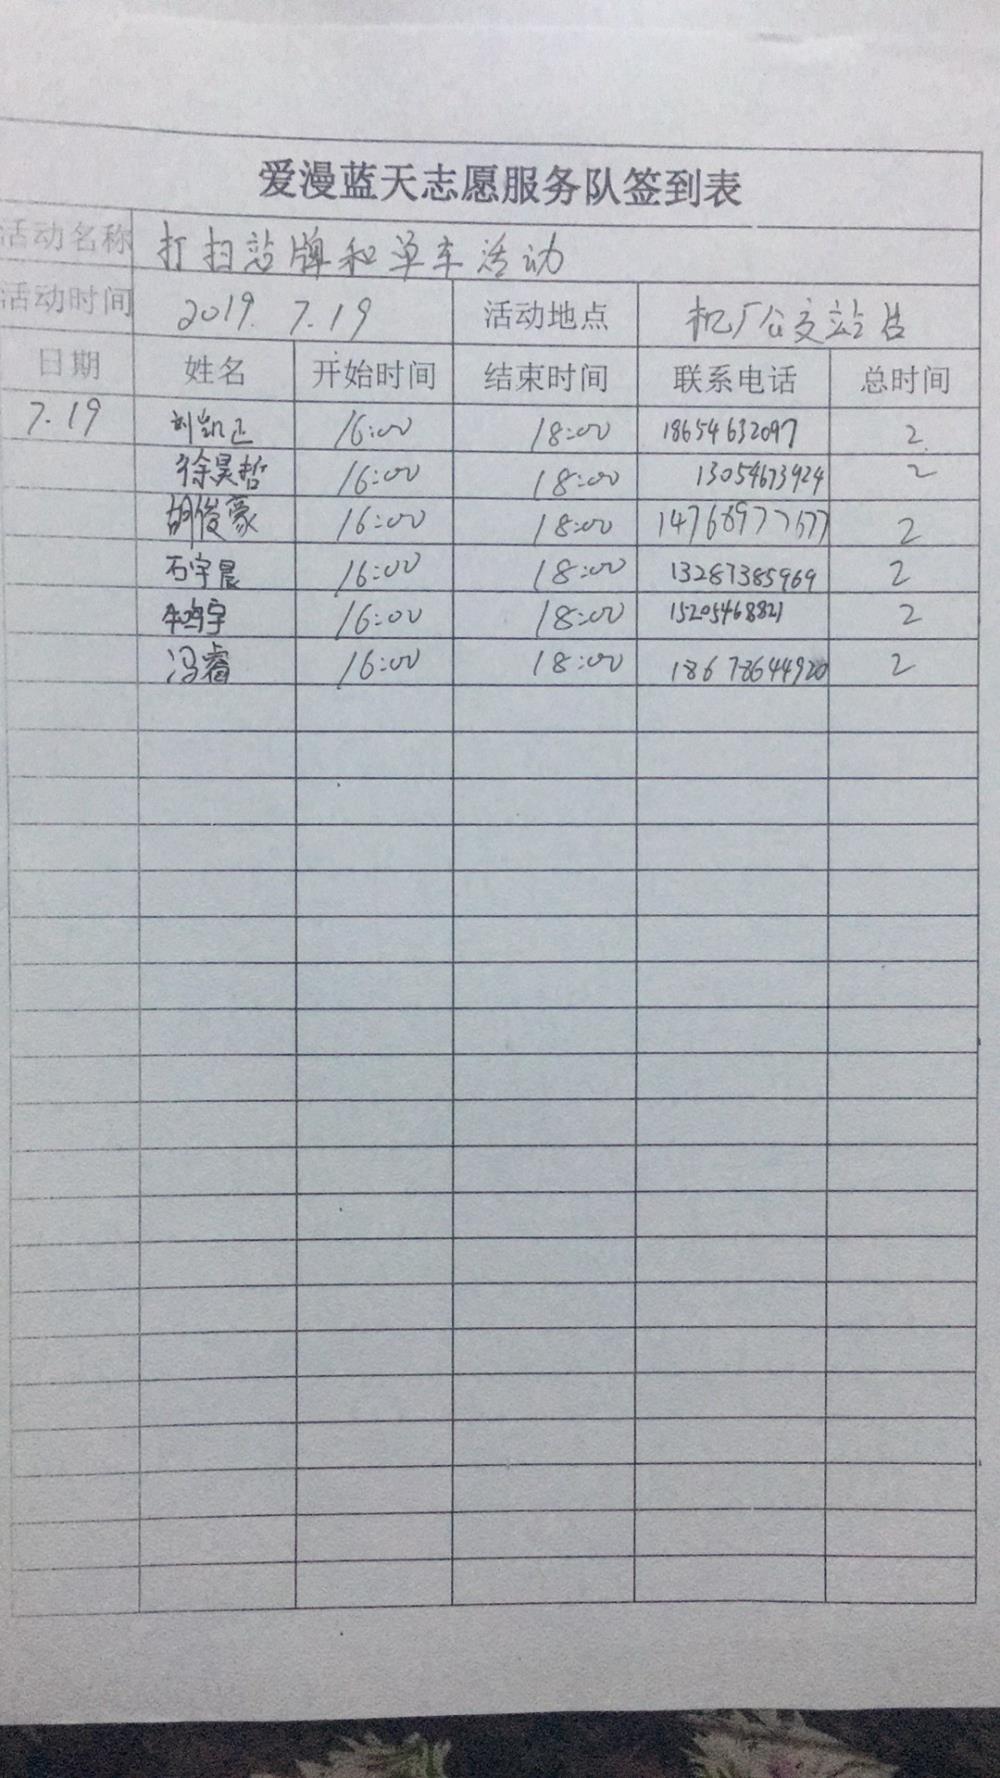 爱漫蓝天志愿服务队签到表
活动名称 打扫站牌和单车活动
活动时间 2019.7.19 活动地点 机厂公交站点
日期 姓名 开始时间 结束时间 联系电话 总时间
7.19 刘凯正 16:00 18:00 18654632097 2
徐昊哲 16:00 18:00 13054673924 2
胡俊豪 16:00 18:00 2
石宇晨 16:00 18:00 13287385969 2
牛鸿宇 16:00 18:00 15205468821 2
冯睿 16:00 18:00 18678644920 2